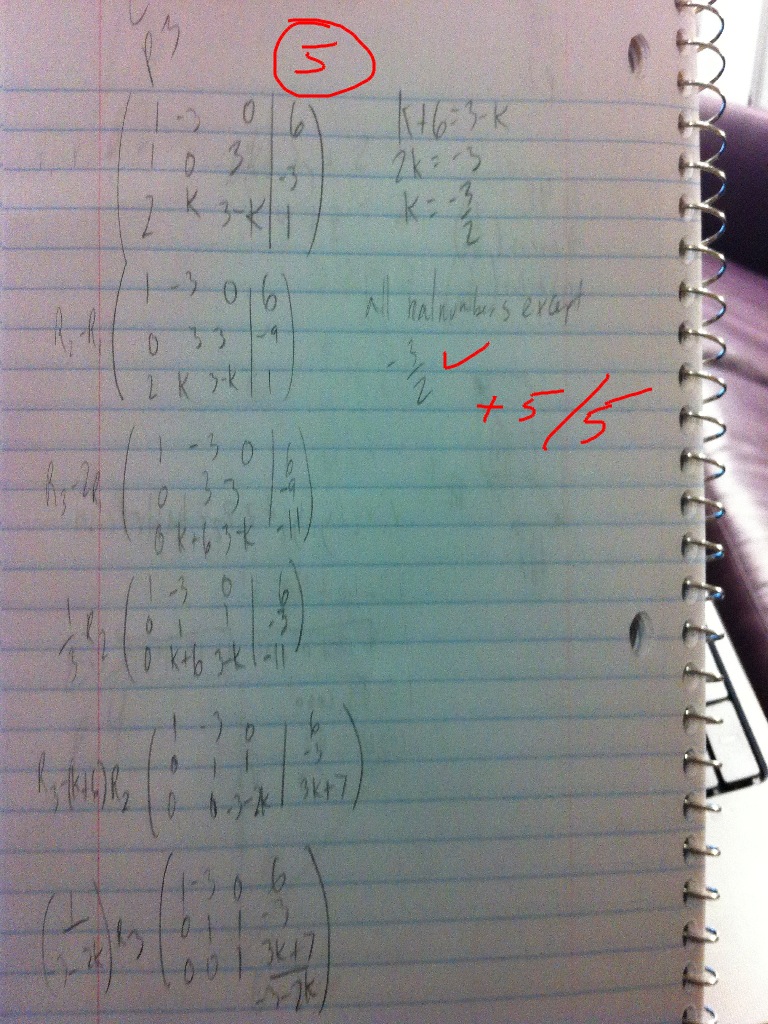 P3
5
1 -3 0 | 6
1 0 3 | -3
2 k 3-k | 1
k+6=3-k
2k=-3
k=-3/2
R2-R1
1 -3 0 | 6
0 3 3 | -9
2 k 3-k | 1
all real numbers except
-3/2 ✓
+5/5
R3-2R1
1 -3 0 | 6
0 3 3 | -9
0 k+6 3-k | -11
1/3 R2
1 -3 0 | 6
0 1 1 | -3
0 k+6 3-k | -11
R3-(k+6)R2
1 -3 0 | 6
0 1 1 | -3
0 0 -3-2k | 3k+7
(1/-3-2k) R3
1 -3 0 6
0 1 1 -3
0 0 1 3k+7/-3-2k